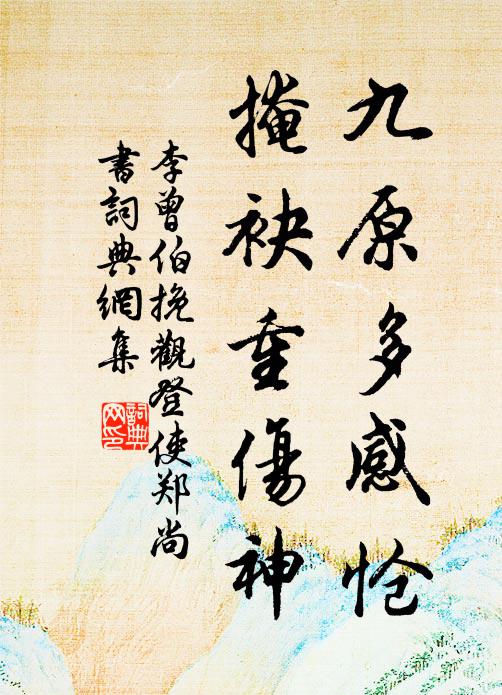 九原多感怆
掩袂重傷神
李曾伯挽觀登使郑尚
書詞典網集
詞典
网印